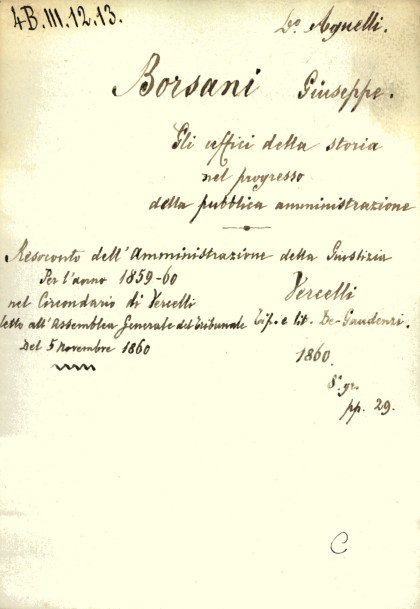 4B.III.12.13.
Do. Agnelli.
Borsani Giuseppe.
Gli uffici della storia
nel progresso
della pubblica amministrazione
Resoconto dell'Amministrazione della Giustizia
Per l'anno 1859-60
nel Circondario di Vercelli
letto all'Assemblea Generale del Tribunale
Del 5 Novembre 1860
Vercelli
Tip. e lit. De-Gaudenzi.
1860.
8.° gr.
pp. 29.
C